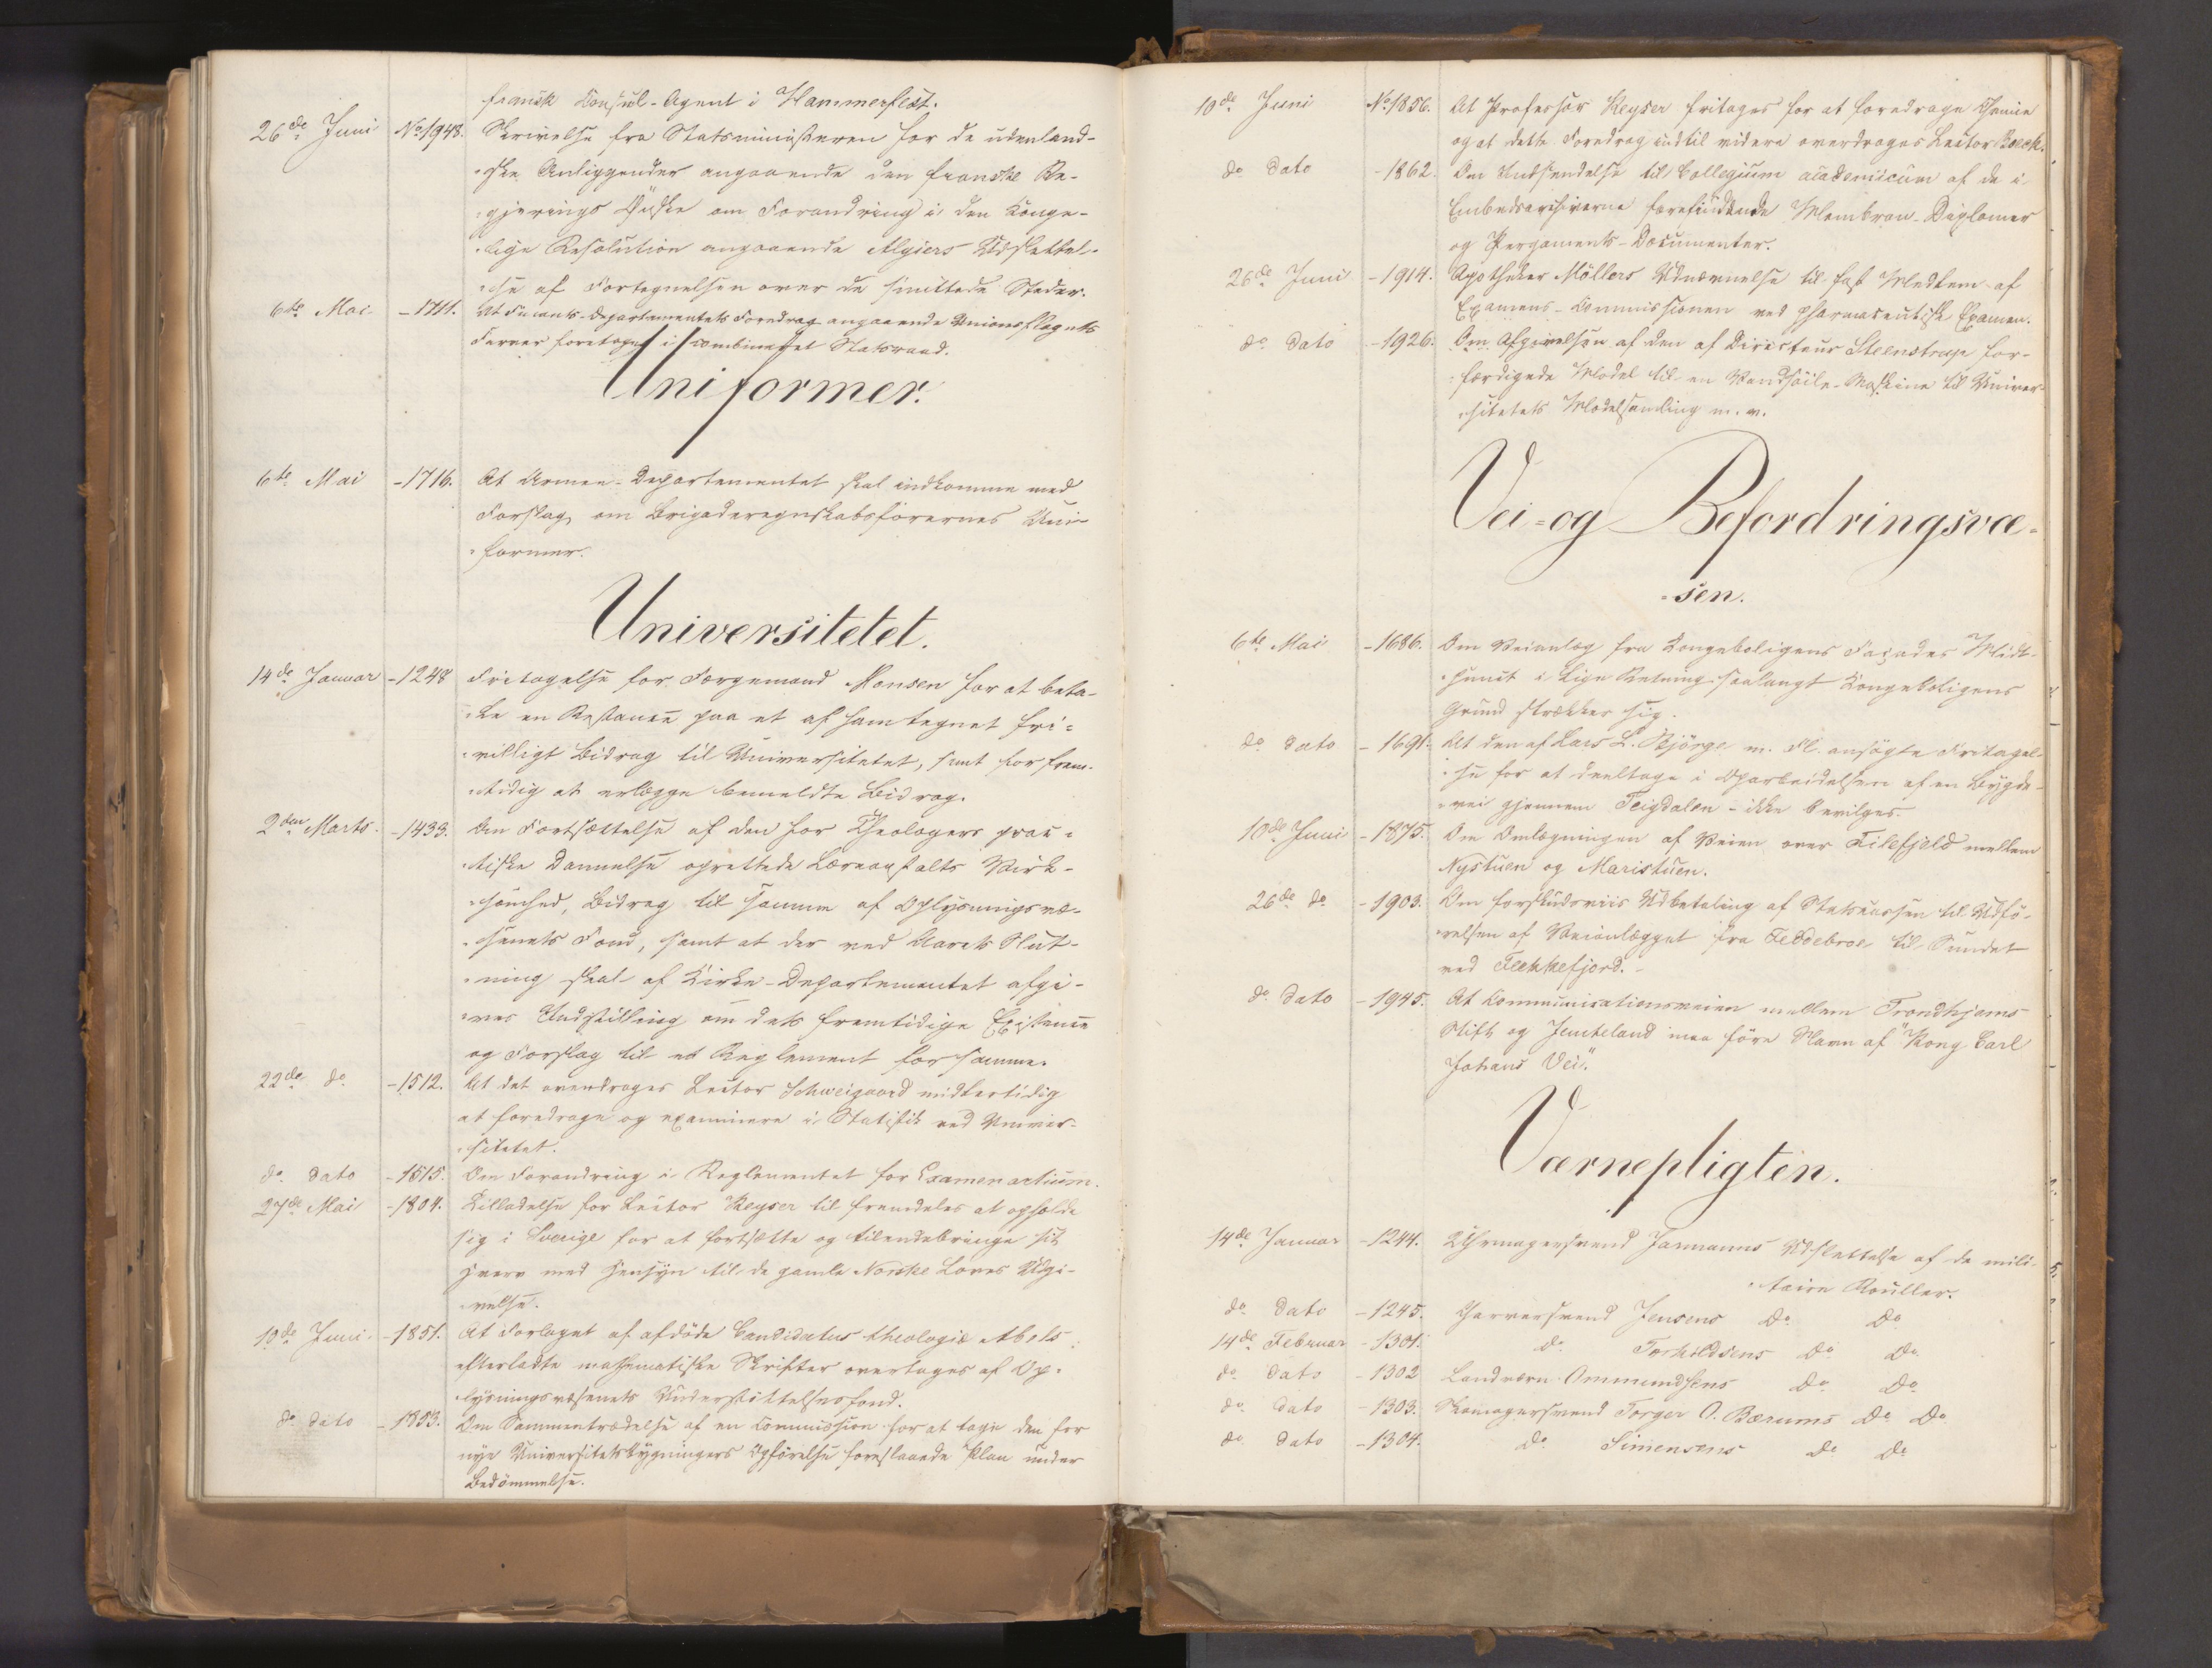 fransk Konsul-Agent i Hammerfest.
26de Juni No 1948. Skrivelse fra Statsministeren for de udenland-
ske Anliggender angaaende den franske Re-
gjerings Ønske om Forandring i den Konge-
lige Resolution angaaende Algiers Udslettel-
se af Fortegnelsen over de smittede Steder.
6te Mai - 1711. At Finants-Departementets Foredrag angaaende Unionsflagets
Farver foretages i combineret Statsraad.
Uniformer.
6te Mai - 1716. At Armee-Departementet skal indkomme med
Forslag om Brigaderegnskabsførernes Uni-
former.
Universitetet.
14de Januar - 1248 Fritagelse for Færgemand Monsen for at beta-
le en Restance paa et af ham tegnet fri-
villigt Bidrag til Universitetet, samt for frem-
tidig at erlægge bemeldte Bidrag.
2den Marts - 1433. Om Fortsættelse af den for Theologers prac-
tiske Dannelse oprettede Læreanstalts Virk-
somhed, Bidrag til samme af Oplysningsvæ-
senets Fond, samt at der ved Aarets Slut-
ning skal af Kirke-Departementet afgi-
ves Indstilling om dets fremtidige Existence
og Forslag til et Reglement for samme.
22de do - 1512. At det overdrages Lector Schweigaard midlertidig
at foredrage og examinere i Statistik ved Univer-
sitetet.
do dato - 1515. Om Forandring i Reglementet for Examen artium.
27de Mai - 1804. Tilladelse for Lector Keyser til fremdeles at opholde
sig i Sverige for at fortsætte og tilendebringe sit
Hverv med Hensyn til de gamle Norske Loves Udgi-
velse.
10de Juni - 1851. At Forlaget af afdøde Candidatus theologiæ Abels
efterladte mathematiske Skrifter overtages af Op-
lysningsvæsenets Understøttelsesfond.
do dato - 1853. Om Sammentrædelse af en Commission for at tage den for
nye Universitetsbygningers Opførelse foreslaaede Plan under
Bedømmelse.
10de Juni No 1856. At Professor Keyser fritages for at foredrage Chemie
og at dette Foredrag indtil videre overdrages Lector Boeck.
do dato - 1862. Om Indsendelse til Collegium academicum af de i
Embedsarchiverne forefindende Membran-Diplomer
og Pergaments-Documenter.
26de Juni - 1914. Apotheker Möllers Udnævnelse til fast Medlem af
Examens-Commissionen ved pharmaceutisk Examen.
do dato - 1926. Om Afgivelsen af den af Directeur Steenstrup for-
færdigede Model til en Vandsøile-Maskine til Univer-
sitetets Modelsamling m. v.
Vei- og Befordringsvæ-
sen.
6te Mai - 1686. Om Veianlæg fra Kongeboligens Façades Midt-
punct i lige Retning saalangt Kongeboligens
Grund strækker sig.
do dato - 1691. At den af Lars L. Bjørge m. Fl. ansøgte Fritagel-
se for at deeltage i Oparbeidelsen af en Bygde-
vei gjennem Teigdalen - ikke bevilges.
10de Juni - 1875. Om Omlægningen af Veien over Filefjeld mellem
Nystuen og Maristuen.
26de do - 1903. Om forskudsviis Udbetaling af Statscassen til Udfø-
relsen af Veianlægget fra Feddebroe til Sundet
ved Flekkefjord.
do dato - 1945. At Kommunicationsveien mellem Trondhjems
Stift og Jemteland maa føre Navn af "Kong Carl
Johans Vei".
Værnepligten.
14de Januar - 1244. Uhrmagersvend Jarmanns Udslettelse af de mili-
taire Rouller.
do dato - 1245. Garversvend Jensens do do
14de Februar - 1301. do Torkildsens do do
do dato - 1302 Landværn Ommundsens do do
do dato - 1303. Skomagersvend Torger O. Bærums do do
do dato - 1304. do Simensens do do